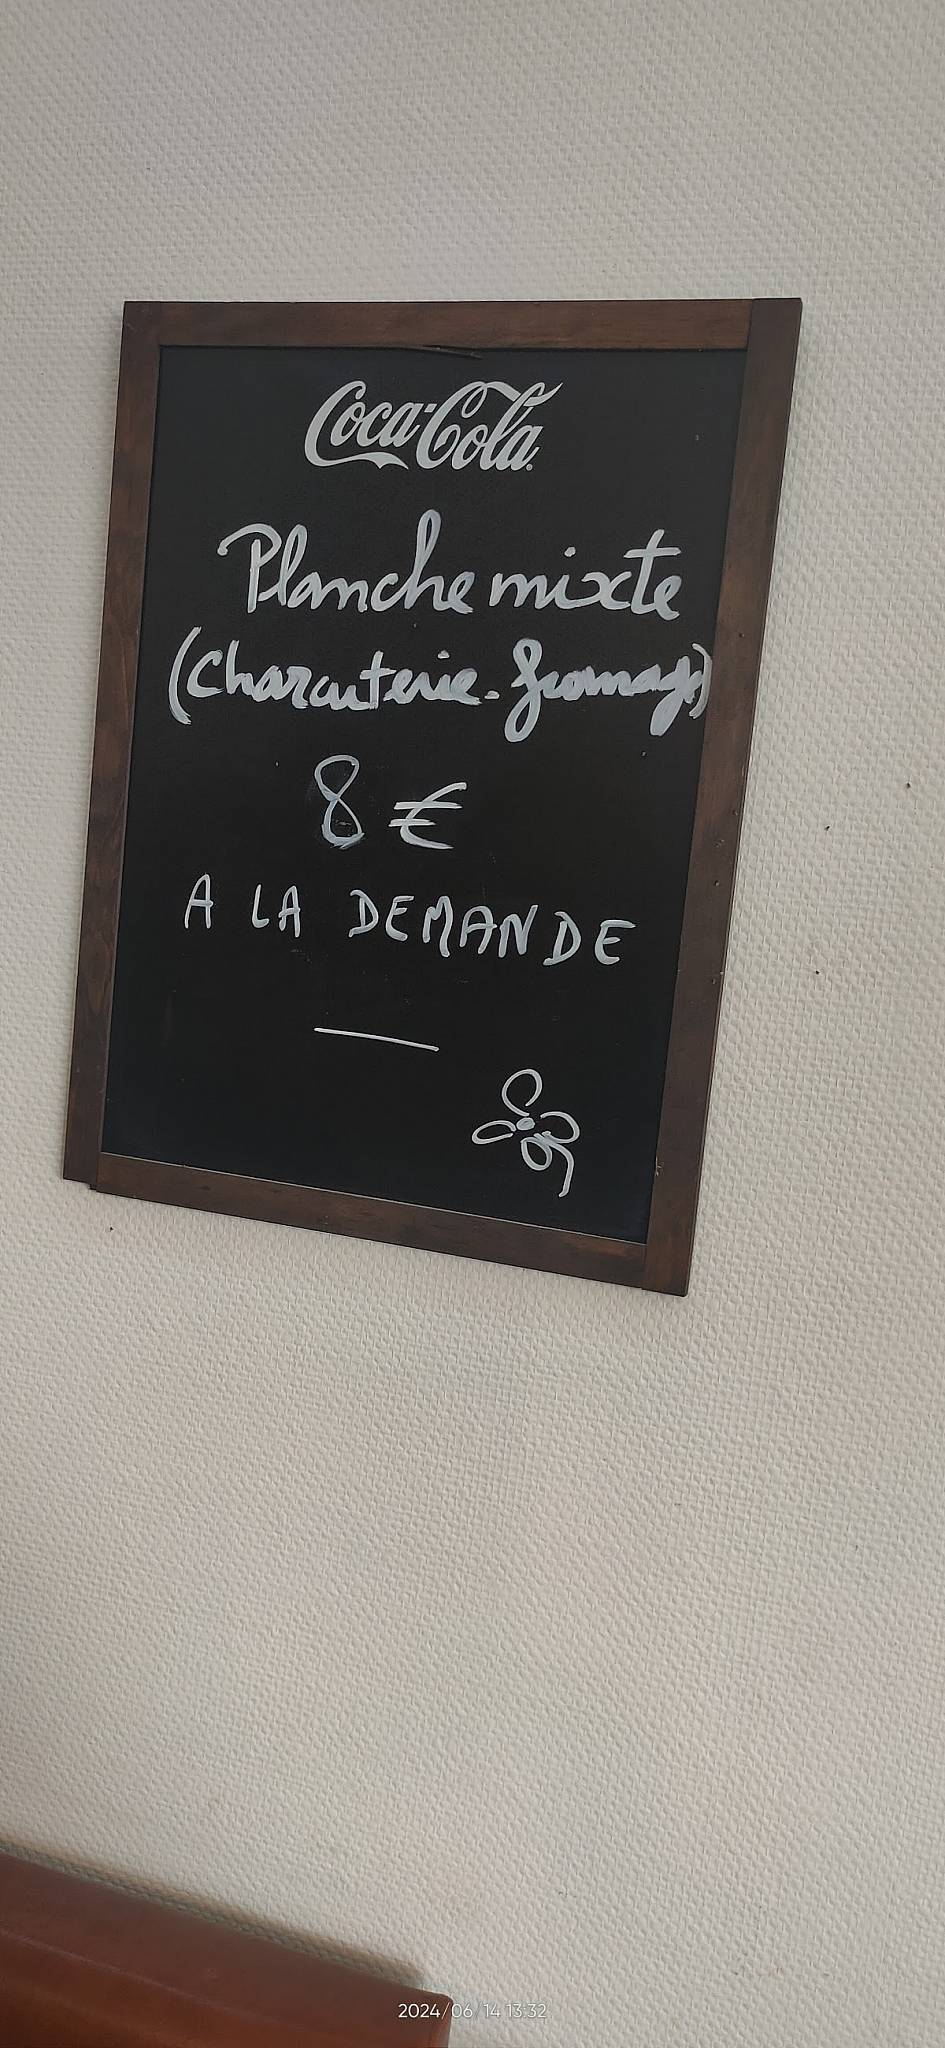 Coca-Cola
Planche mixte
(Charcuterie-fromage)
8 €
A LA DEMANDE
2024/06/14 13:32